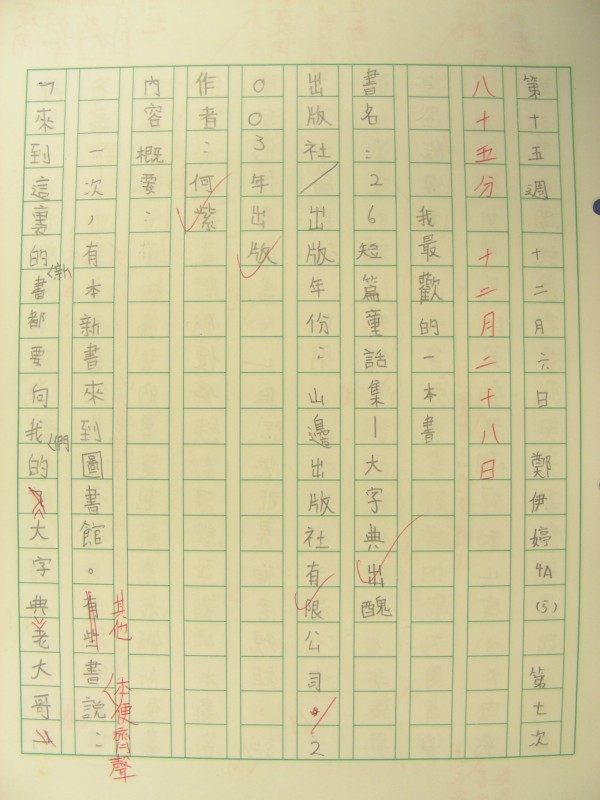 第十五週 十二月六日 鄭伊婷 4A (5) 第七次
八十五分 十二月二十八日
我最歡的一本書
書名：26短篇童話集—大字典出醜
出版社/出版年份：山邊出版社有限公司。/2
003年出版
作者：何紫
內容概要：
一次，有本新書來到圖書館。有些書說：
其他 本便齊聲
「來到這裏的新書都要向我們的大字典老大哥